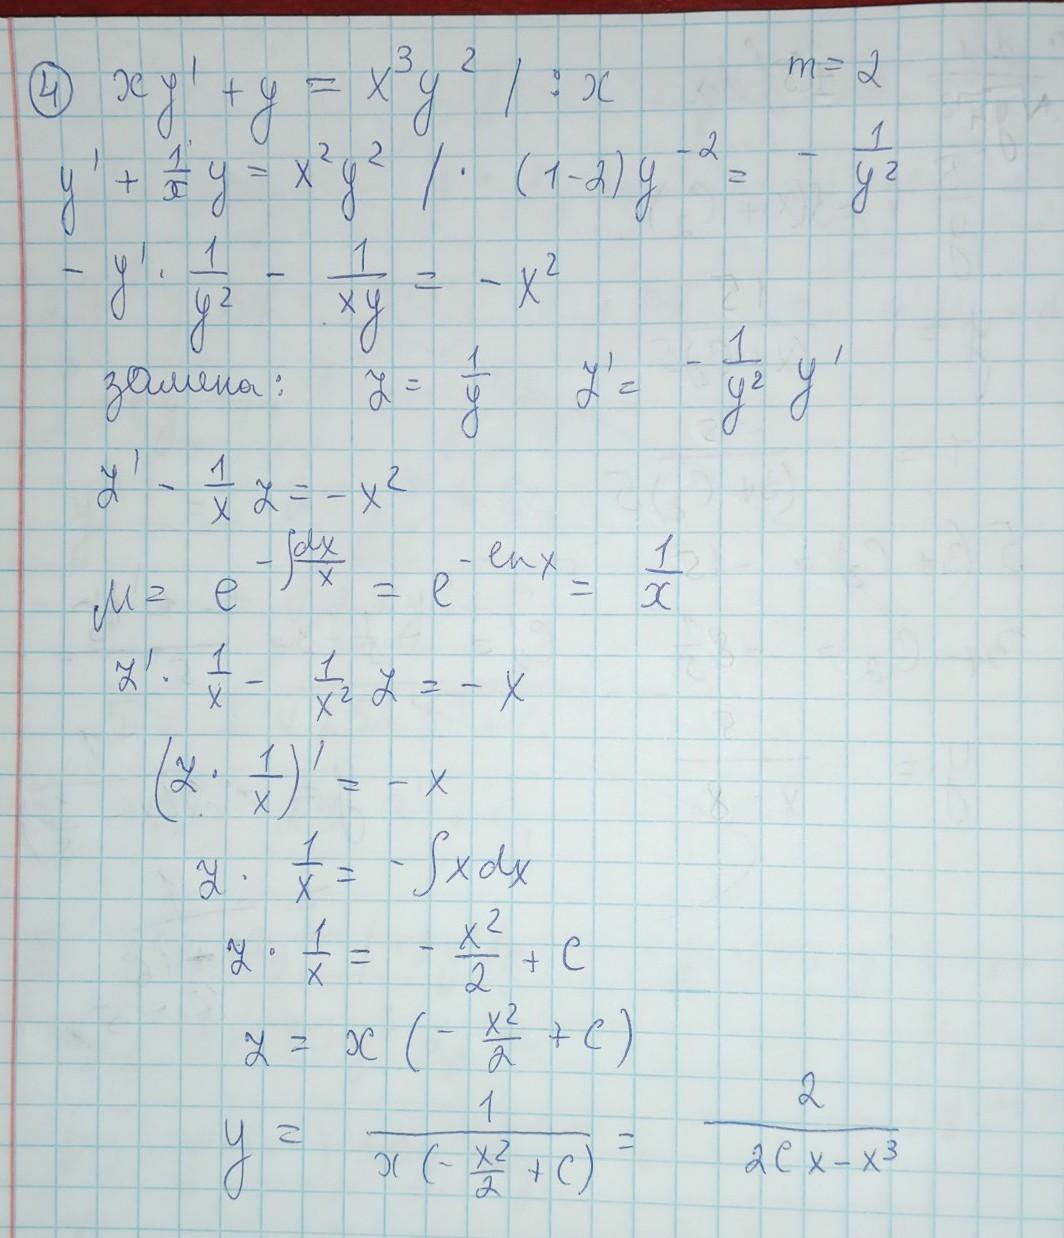 ④ xy' + y = x³y² / : x m = 2
y' + 1/x y = x²y² / · (1-2)y⁻² = - 1/y²
- y' · 1/y² - 1/xy = - x²
замена: z = 1/y z' = - 1/y² y'
z' - 1/x z = - x²
μ = e^(-∫dx/x) = e^(-ln x) = 1/x
z' · 1/x - 1/x² z = - x
(z · 1/x)' = - x
z · 1/x = - ∫x dx
z · 1/x = - x²/2 + C
z = x (- x²/2 + C)
y = 1/(x (- x²/2 + C)) = 2/(2Cx - x³)